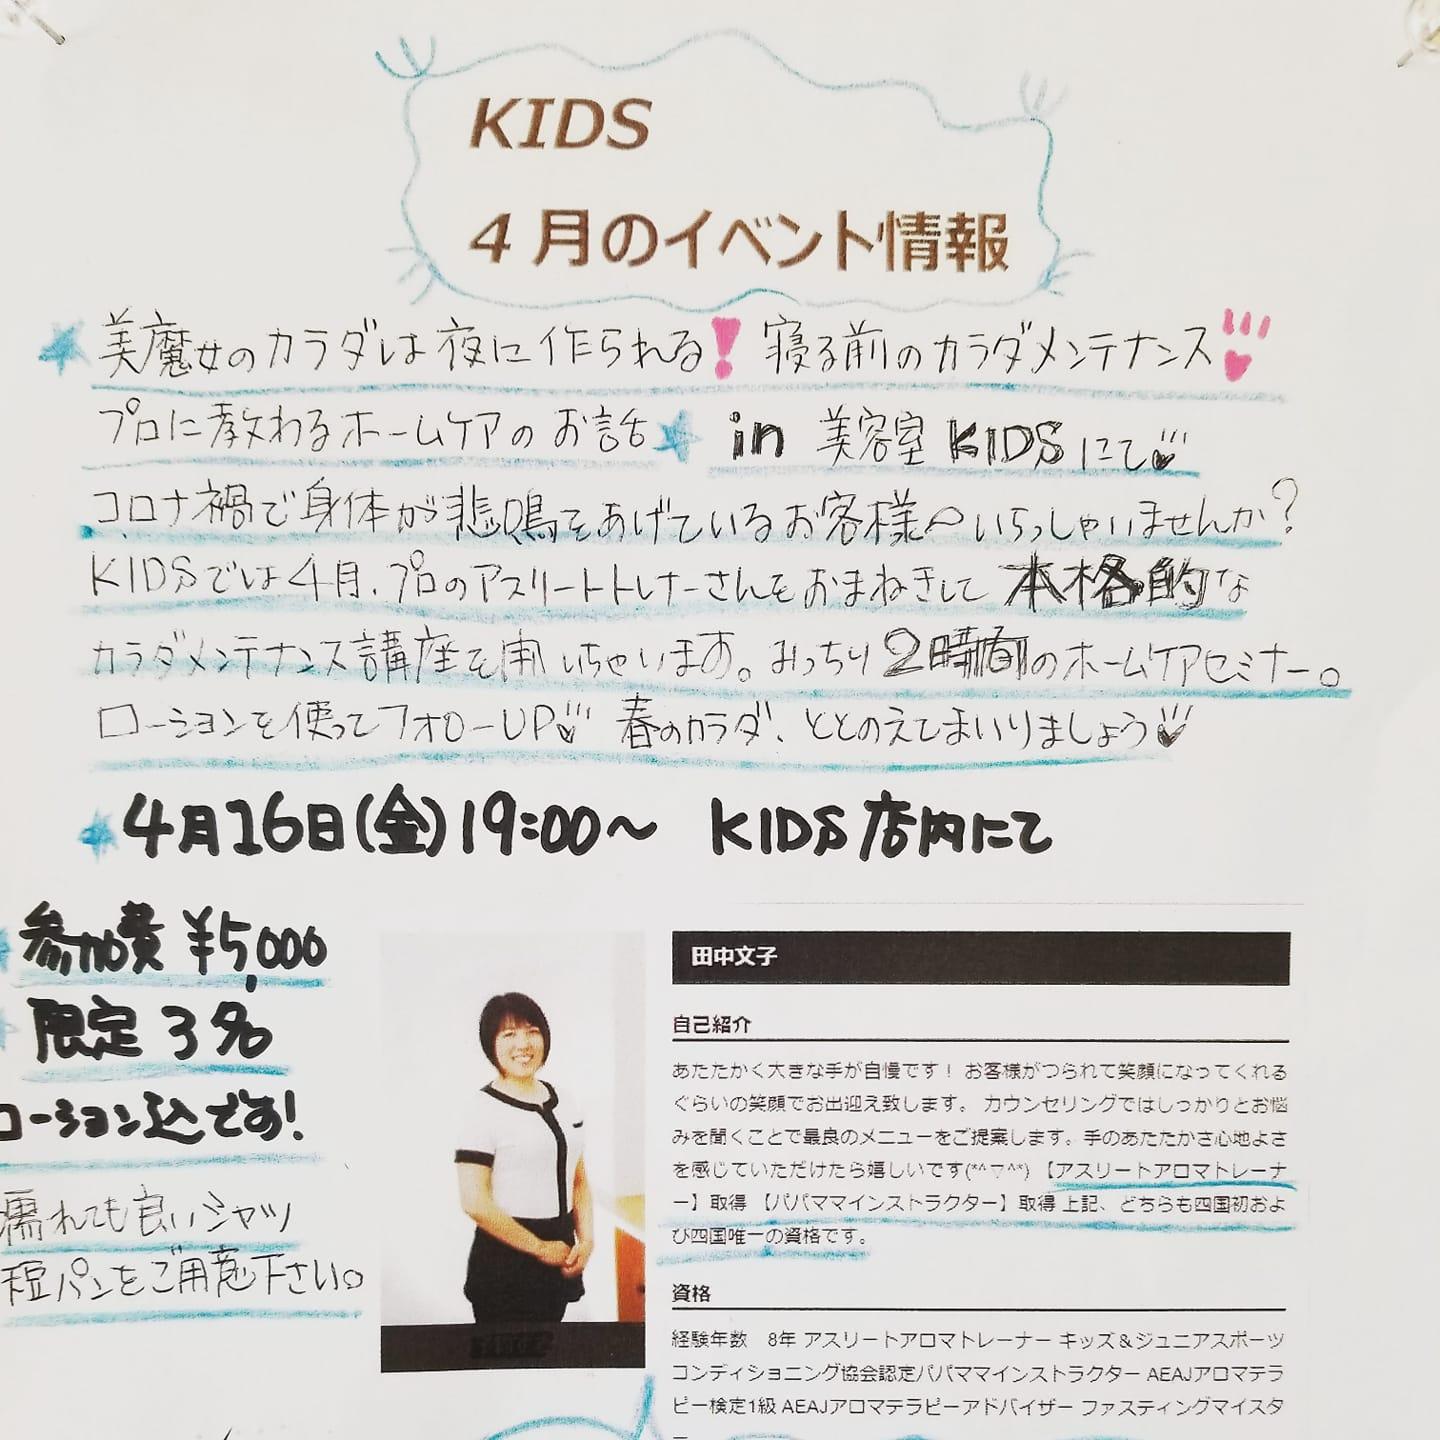 KIDS
4月のイベント情報
美魔女のカラダは夜に作られる! 寝る前のカラダメンテナンス
プロに教わるホームケアのお話 in 美容室 KIDSにて
コロナ禍で身体が悲鳴をあげているお客様〜いらっしゃいませんか?
KIDSでは4月、プロのアスリートトレーナーさんをおまねきして本格的な
カラダメンテナンス講座を開いちゃいます。みっちり2時間のホームケアセミナー。
ローションを使ってフォローUP 春のカラダ、ととのえてまいりましょう
4月16日(金)19:00〜 KIDS店内にて
参加費 ¥5,000
限定3名
ローション込です!
濡れても良いシャツ
短パンをご用意下さい。
田中文子
自己紹介
あたたかく大きな手が自慢です！ お客様がつられて笑顔になってくれる
ぐらいの笑顔でお出迎え致します。 カウンセリングではしっかりとお悩
みを聞くことで最良のメニューをご提案します。手のあたたかさ心地よさ
を感じていただけたら嬉しいです(*^▽^*) 【アスリートアロマトレーナ
ー】取得 【パパママインストラクター】取得 上記、どちらも四国初およ
び四国唯一の資格です。
資格
経験年数　8年 アスリートアロマトレーナー キッズ＆ジュニアスポーツ
コンディショニング協会認定パパママインストラクター AEAJアロマテラ
ピー検定1級 AEAJアロマテラピーアドバイザー ファスティングマイスタ